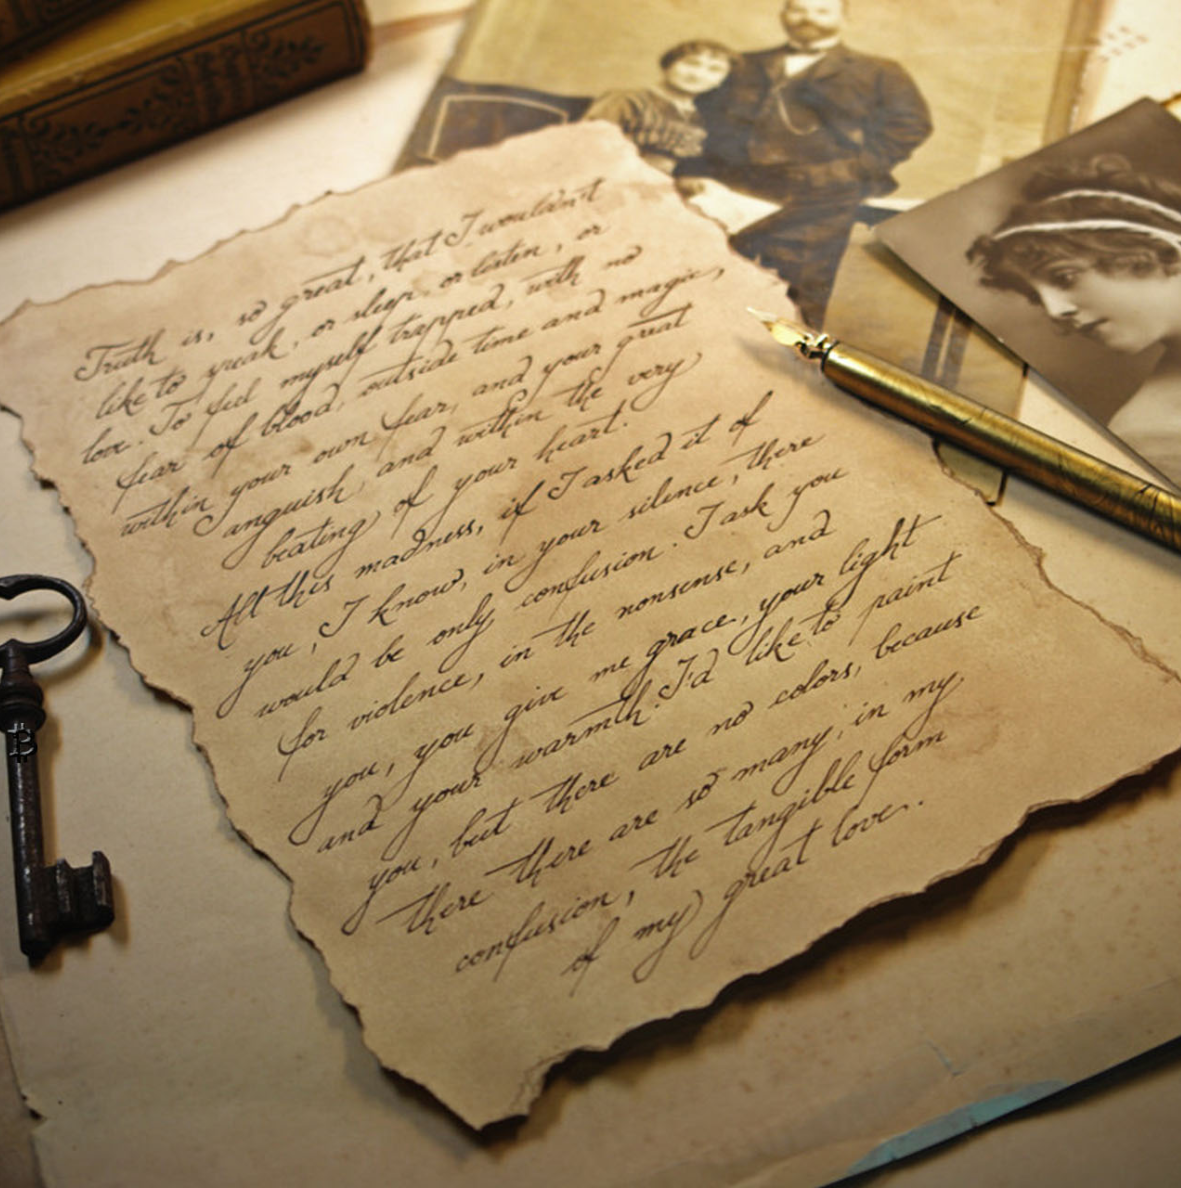 Truth is, so great, that I wouldn't
like to speak, or sleep, or listen, or
love. To feel myself trapped, with no
fear of blood, outside time and magic,
within your own fear, and your great
anguish, and within the very
beating of your heart.
All this madness, if I asked it of
you, I know, in your silence, there
would be only confusion. I ask you
for violence, in the nonsense, and
you, you give me grace, your light
and your warmth. I'd like to paint
you, but there are no colors, because
there there are so many, in my
confusion, the tangible form
of my great love.
₿